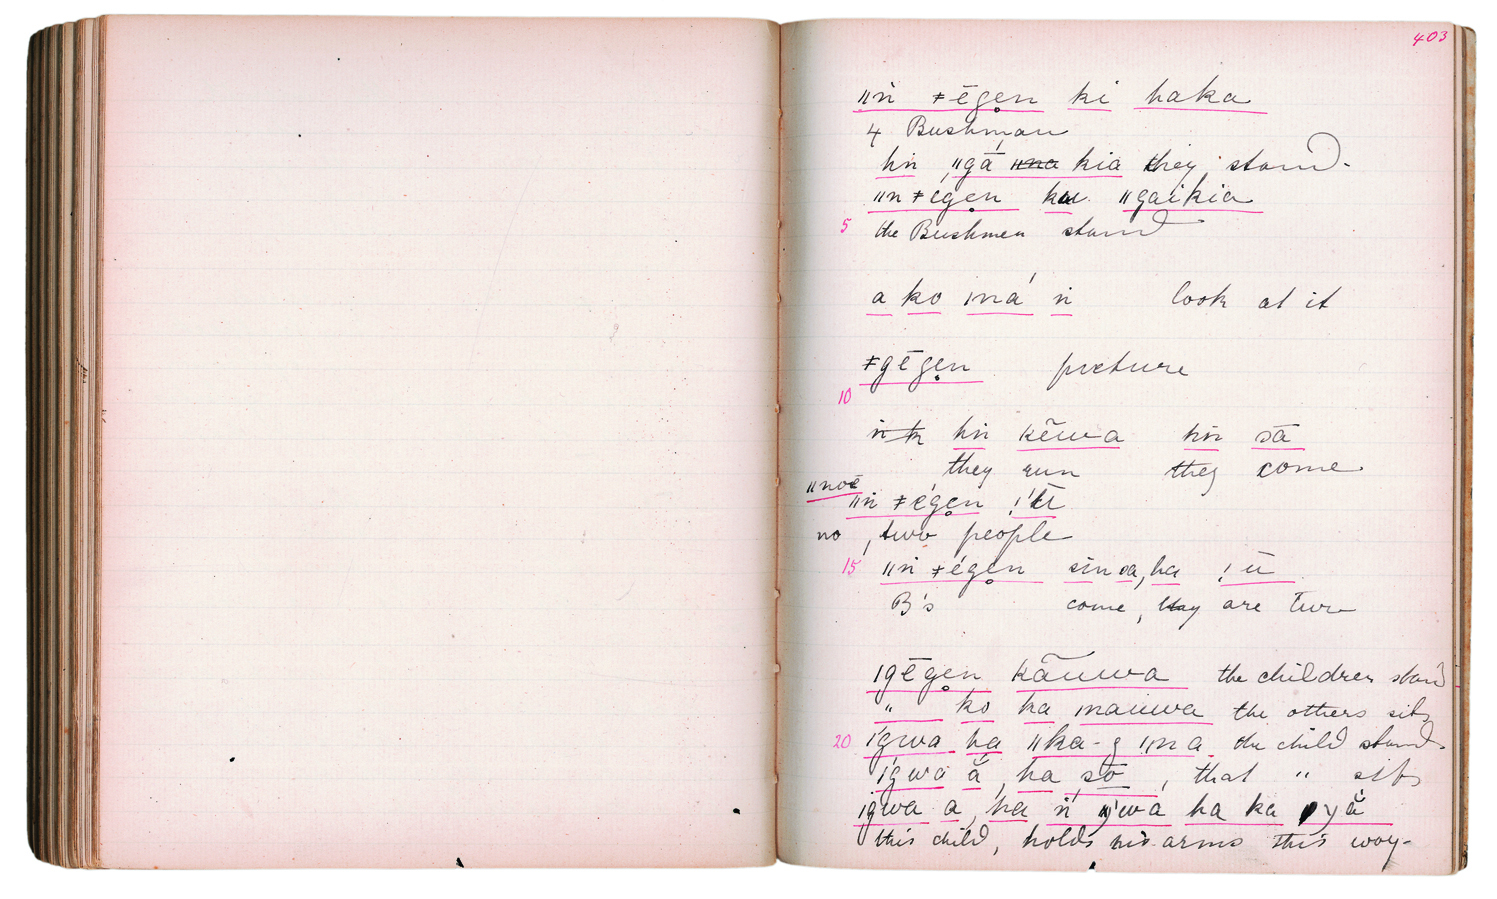 403
"ǹ ǂēgen ki haka
4 Bushman
hǹ "gá kia they stand.
"n ǂégen "gaikia
5 the Bushmen stand
a ko ıná ǹ look at it
ǂgēgen picture
10
hǹ kēuwa hǹ sā
they run they come
"noé
"ǹ ǂégen !'ū
no, two people
15 "ǹ ǂégen sin sa, ha !ū
B's come, they are two
ıgēgen kāuwa the children stand
" ko ha mauwa the others sits
20 ıgwa ha "ka-g ına the child stands.
ıgwa ă, ha sō, that " sits
ıgwa a, ha ń !'wá ha ka yǎ
this child, holds his arms this way-